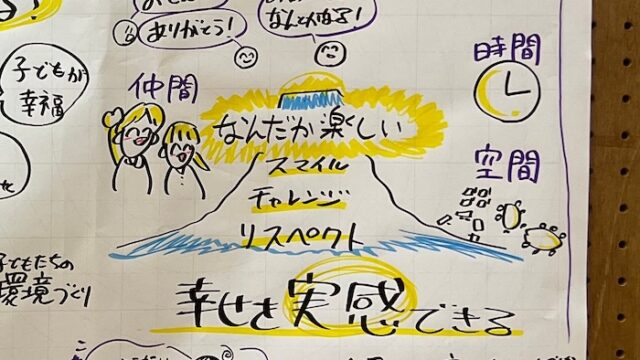 ありがとう!
なんとかなる!
時間
子どもが
幸福
仲間
なんだか楽しい
スマイル
空間
チャレンジ
リスペクト
子どもたちの
環境づくり
幸せを実感できる